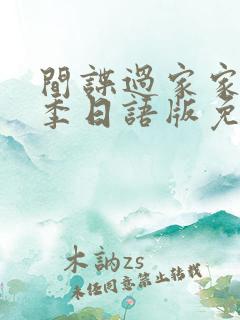 間諜過家家
季日語版免
木訥zs
未任同意禁止转載